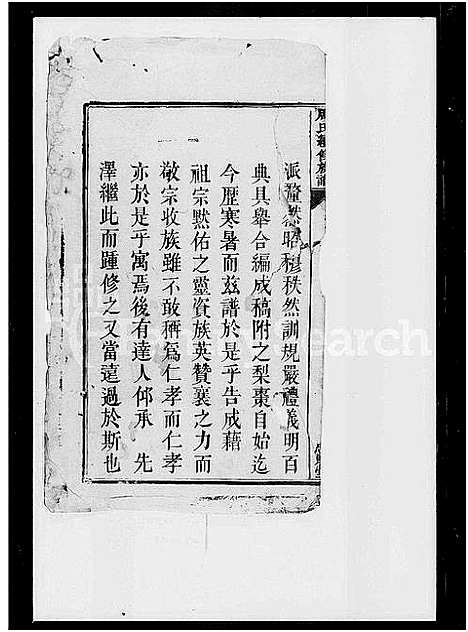 派釐然昭穆秩然訓規嚴禮義明百
典具舉合編成稿附之梨棗自始迄
今歷寒暑而茲譜於是乎告成藉
祖宗默佑之靈資族英贊襄之力而
敬宗收族雖不敢稱爲仁孝而仁孝
亦於是乎寓焉後有達人仰承 先
澤繼此而踵修之又當遠過於斯也